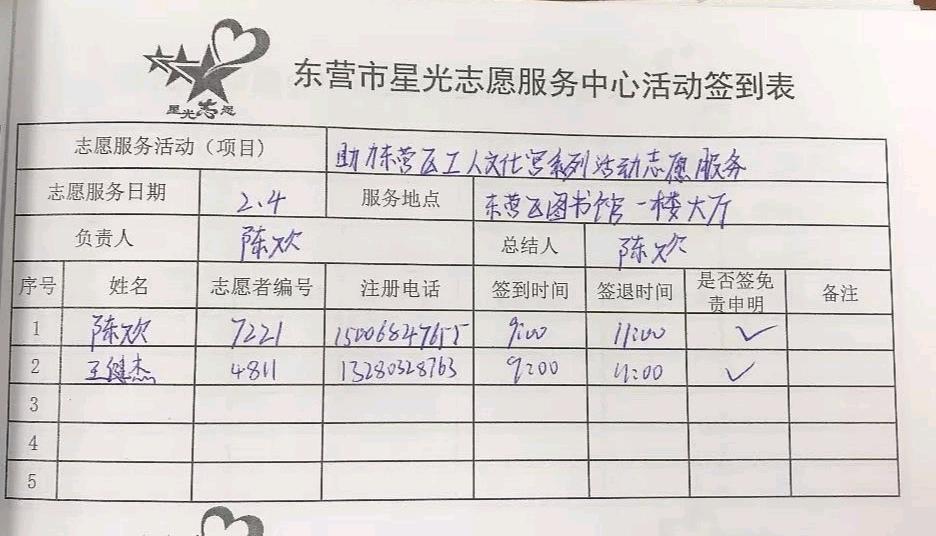 星光志愿
东营市星光志愿服务中心活动签到表
志愿服务活动（项目） 助力东营区工人文化宫系列活动志愿服务
志愿服务日期 2.4 服务地点 东营区图书馆一楼大厅
负责人 陈欢 总结人 陈欢
序号 姓名 志愿者编号 注册电话 签到时间 签退时间 是否签免责申明 备注
1 陈欢 7221 15006847655 9:00 11:00 ✓
2 王健杰 4811 13280328763 9:00 11:00 ✓
3
4
5